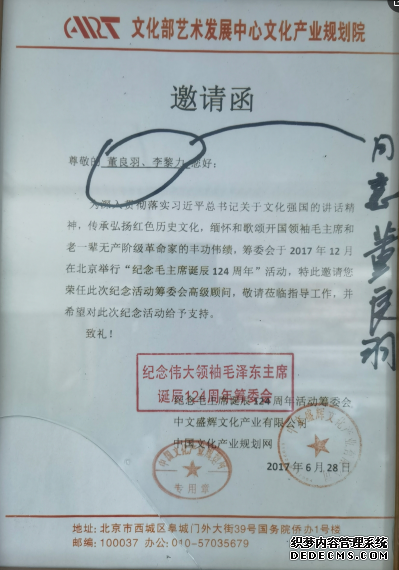 ART 文化部艺术发展中心文化产业规划院
邀请函
尊敬的 董良羽、李黎力 您好：
为深入贯彻落实习近平总书记关于文化强国的讲话精
神，传承弘扬红色历史文化，缅怀和歌颂开国领袖毛主席和
老一辈无产阶级革命家的丰功伟绩，筹委会于 2017 年 12 月
在北京举行“纪念毛主席诞辰 124 周年”活动，特此邀请您
荣任此次纪念活动筹委会高级顾问，敬请莅临指导工作，并
希望对此次纪念活动给予支持。
致礼！
同意董良羽
纪念伟大领袖毛泽东主席
诞辰124周年筹委会
纪念毛主席诞辰 124 周年活动筹委会
中文盛辉文化产业有限公司
中国文化产业规划网
专用章
2017 年 6 月 28 日
地址：北京市西城区阜城门外大街39号国务院侨办1号楼
邮编：100037 办公：010-57035679
织梦内容管理系统
DEDECMS.COM